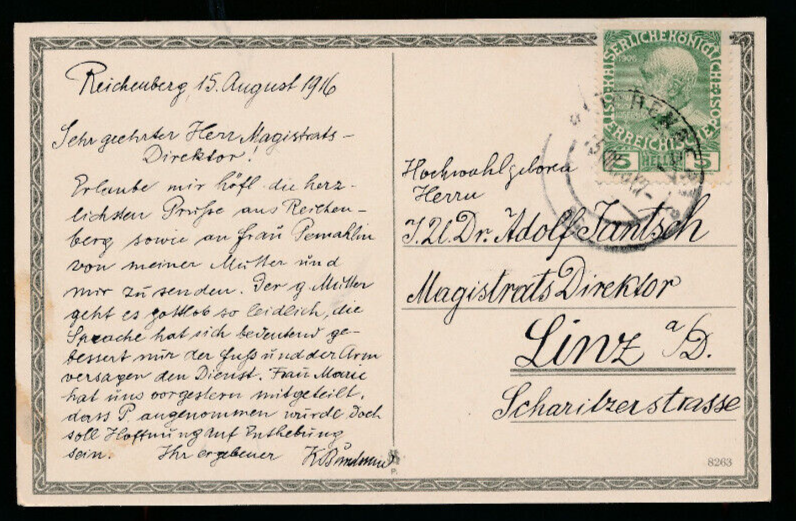 Reichenberg, 15. August 1916
Sehr geehrter Herr Magistrats-
Direktor!
Erlaube mir höfl. die herz-
lichsten Grüße aus Reichen-
berg sowie an Frau Gemahlin
von meiner Mutter und
mir zu senden. Der g. Mutter
geht es gottlob so leidlich, die
Sprache hat sich bedeutend ge-
bessert nur der Fuß und der Arm
versagen den Dienst. Frau Marie
hat uns vorgestern mitgeteilt,
dass P. angenommen wurde doch
soll Hoffnung auf Enthebung
sein. Ihr ergebener
KAISERLICHE KÖNIGLICHE ÖSTERREICHISCHE
5 HELLER 5
Hochwohlgeboren
Herrn
J.U.Dr. Adolf Jantsch
Magistrats Direktor
Linz a/D.
Scharitzerstrasse
8263